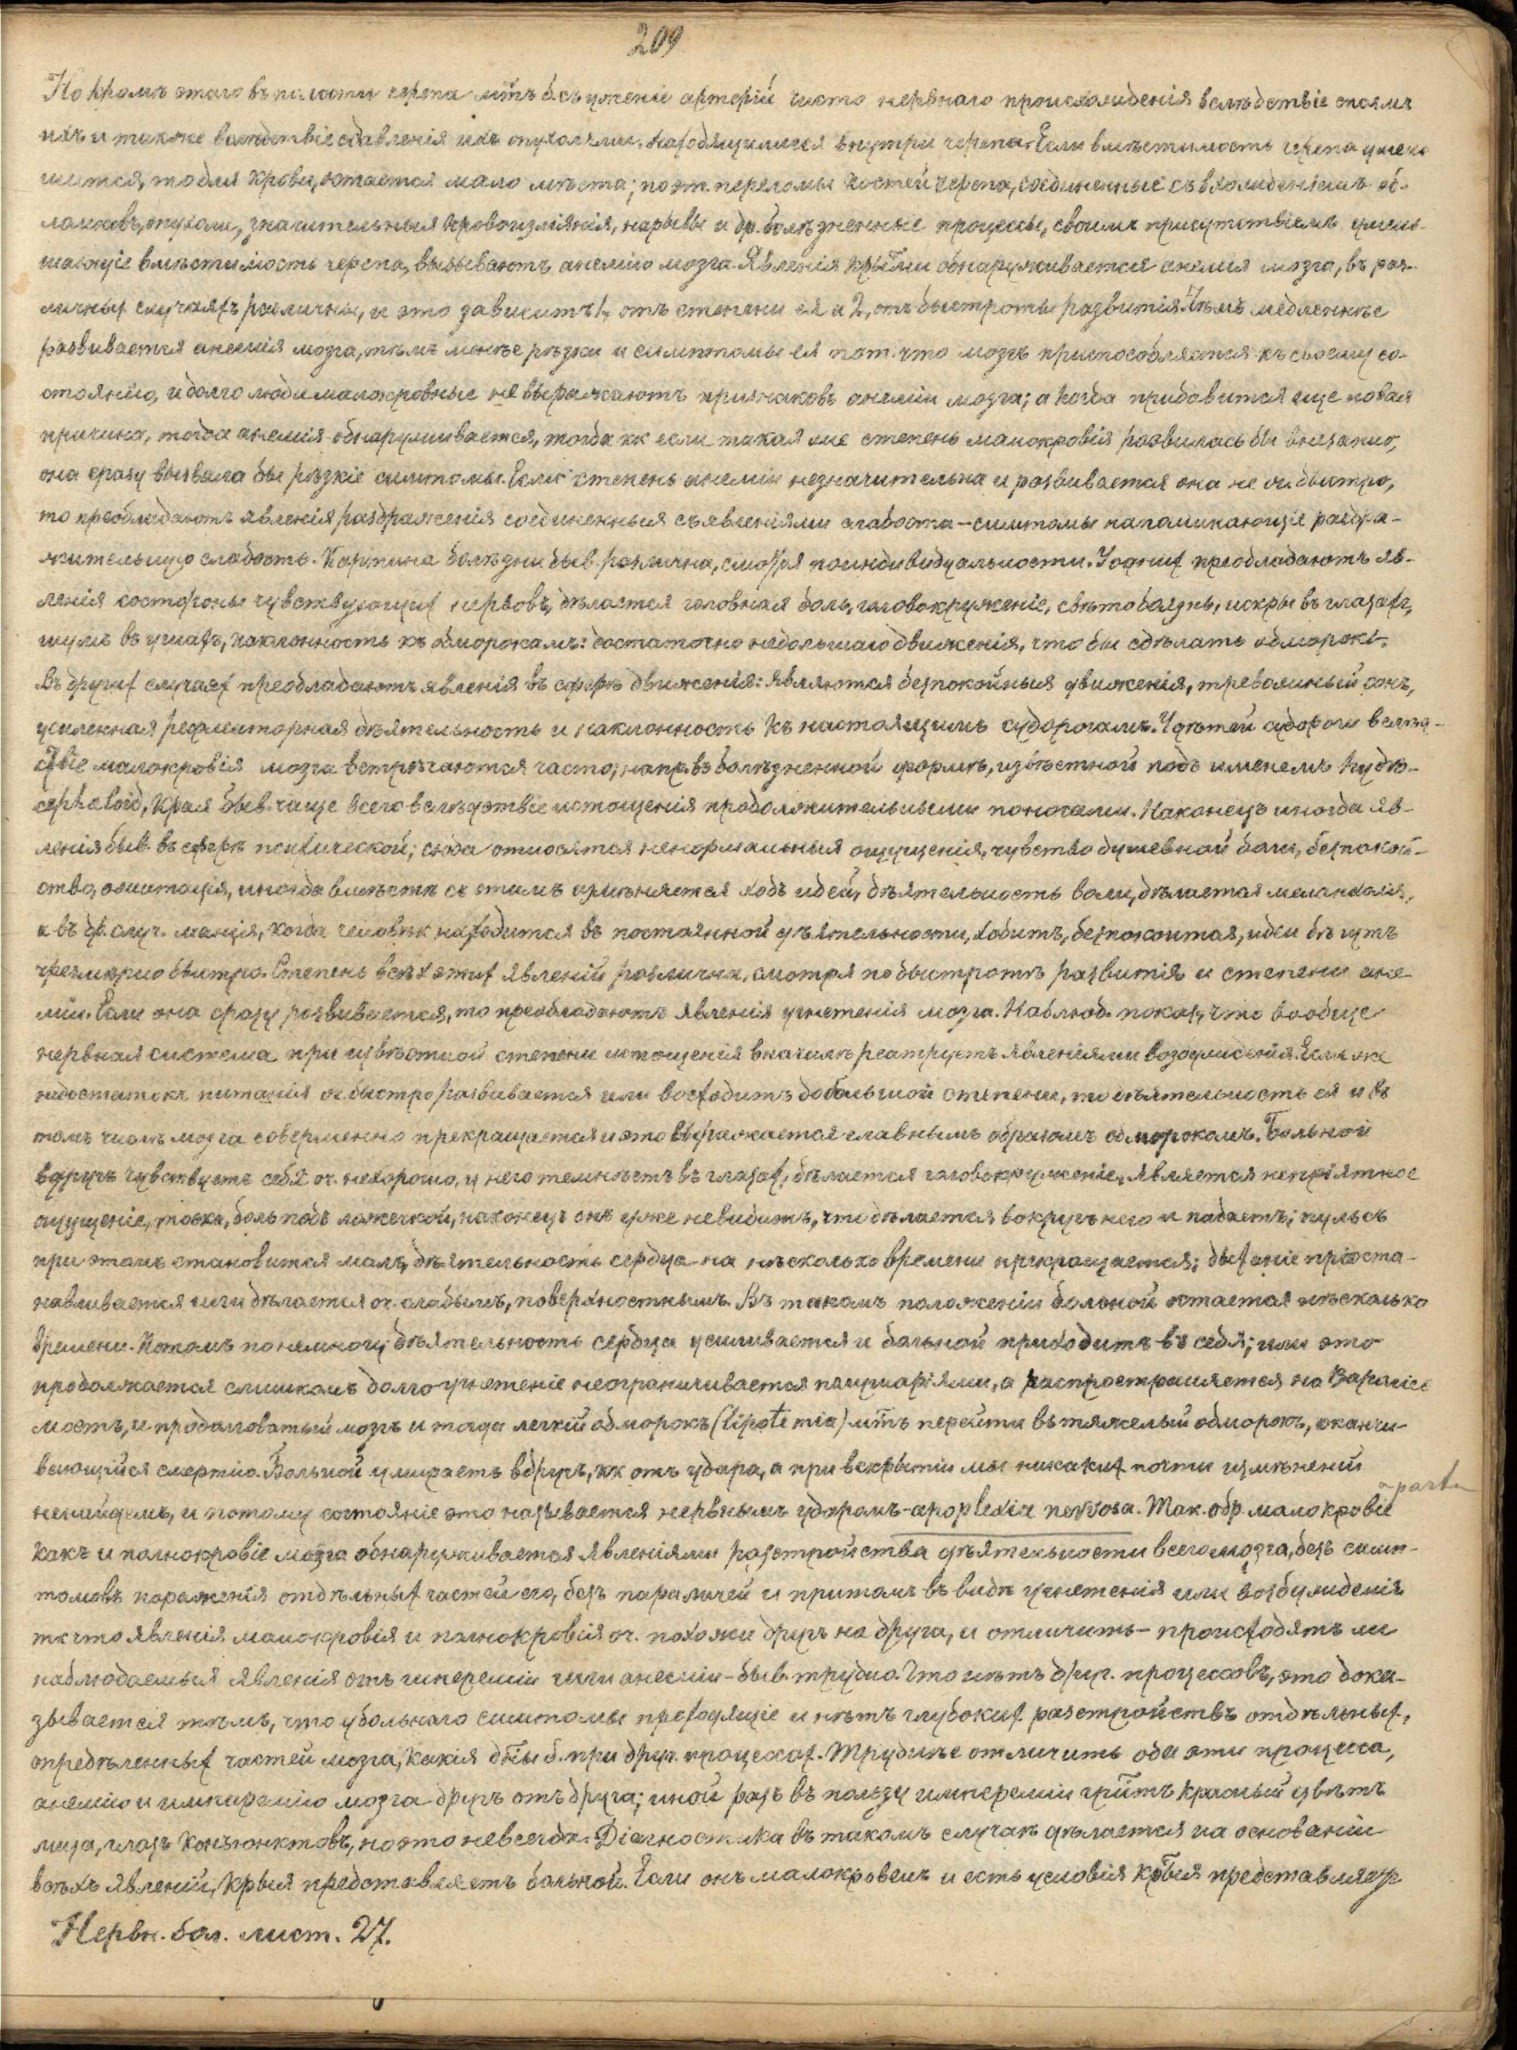 209
Но кромѣ этого въ полости черепа м. тъ б. съуженіе артерій чисто нервнаго происхожденія вслѣдствіе спазма
ихъ и также вслѣдствіе сдавленія ихъ опухолями, находящимися внутри черепа. Если вмѣстимость черепа умень
шится, то для крови, остается мало мѣста; поэт. переломы костей черепа, соединенные съ вхожденіемъ об-
ломковъ, опухоли, значительныя кровоизліянія, нарывы и др. болѣзненные процессы, своимъ присутствіемъ умень-
шающіе вмѣстимость черепа, вызываютъ анемію мозга. Явленія крыми обнаруживается анемія мозга, въ раз-
личныхъ случаяхъ различны, и это зависитъ 1, отъ степени ея и 2, отъ быстроты развитія. Чѣмъ медленнѣе
развивается анемія мозга, тѣмъ менѣе рѣзки и симптомы ея пот. что мозгъ приспособляется къ своему со-
стоянію, и долго люди малокровные не выражаютъ признаковъ анеміи мозга; а когда прибавится еще новая
причина, тогда анемія обнаруживается, тогда кк если такая же степень малокровія развилась бы внезапно,
она сразу вызвала бы рѣзкіе симптомы. Если степень анеміи незначительна и развивается она не оч. быстро,
то преобладаютъ явленія раздраженія соединенныя съ явленіями слабости – симптомы напоминающіе раздра-
жительную слабость. Картина болѣзни быв. различна, смотря по индивидуальности. У однихъ преобладаютъ яв-
ленія со стороны чувствующихъ нервовъ, дѣлается головная боль, головокруженіе, свѣтобоязнь, искры въ глазахъ,
шумъ въ ушахъ, наклонность къ обморокамъ: достаточно небольшаго движенія, что бы сдѣлать обморокъ.
Въ другихъ случаяхъ преобладаютъ явленія въ сферѣ движенія: являются безпокойныя движенія, тревожный сонъ,
усиленная рефлекторная дѣятельность и наклонность къ настоящимъ судорогамъ. У дѣтей судороги вслѣд-
ствіе малокровія мозга встрѣчаются часто, напр. въ болѣзненной формѣ, извѣстной подъ именемъ hydro-
cephaloid, края быв. чаще всего вслѣдствіе истощенія продолжительными поносами. Наконецъ иногда яв-
ленія быв. въ сферѣ психической; сюда относятся ненормальныя ощущенія, чувство душевной боли, безпокой-
ство, ажитація, иногда вмѣстѣ съ этимъ измѣняется ходъ идей, дѣятельность воли, дѣлается меланхолія,
а въ др. случ. манія, когда человѣкъ находится въ постоянной дѣятельности, ходитъ, безпокоится, идеи бѣгутъ
чрезмѣрно быстро. Степень всѣхъ этихъ явленій различна, смотря по быстротѣ развитія и степени ане-
міи. Если она сразу развивается, то преобладаютъ явленія угнетенія мозга. Наблюд. показ., что вообще
нервная система при извѣстной степени истощенія вначалѣ реагируетъ явленіями возбужденія. Если же
недостатокъ питанія оч. быстро развивается или восходитъ до большой степени, то дѣятельность ея и въ
томъ числѣ мозга совершенно прекращается и это выражается главнымъ образомъ обморокомъ. Больной
вдругъ чувствуетъ себя оч. нехорошо, у него темнѣетъ въ глазахъ, дѣлается головокруженіе, является непріятное
ощущеніе, тоска, боль подъ ложечкой, наконецъ онъ уже не видитъ, что дѣлается вокругъ него и падаетъ; пульсъ
при этомъ становится малъ, дѣятельность сердца на нѣсколько времени прекращается; дыханіе пріоста-
навливается или дѣлается оч. слабымъ, поверхностнымъ. Въ такомъ положеніи больной остается нѣсколько
времени. Потомъ понемногу дѣятельность сердца усиливается и больной приходитъ въ себя; или это
продолжается слишкомъ долго угнетеніе неограничивается полушаріями, а распространяется на Варолiевъ
мостъ, и продолговатый мозгъ и тогда легкій обморокъ (lipotemia) м. тъ перейти въ тяжелый обморокъ, оканчи-
вающійся смертію. Больной умираетъ вдругъ, кк отъ удара, а при вскрытіи мы никакихъ почти измѣненій
a parte
ненайдемъ, и потому состояніе это называется нервнымъ ударомъ – apoplexia nervosa. Так. обр. малокровіе
какъ и полнокровіе мозга обнаруживается явленіями разстройства дѣятельности всего мозга, безъ симп-
томовъ пораженія отдѣльныхъ частей его, безъ параличей и притомъ въ видѣ угнетенія или возбужденія
тк что явленія малокровія и полнокровія оч. похожи другъ на друга, и отличить – происходятъ ли
наблюдаемыя явленія отъ гипереміи или анеміи – быв. трудно. Что нѣтъ друг. процессовъ, это дока-
зывается тѣмъ, что у больнаго симптомы преходящіе и нѣтъ глубокихъ разстройствъ отдѣльныхъ,
опредѣленныхъ частей мозга, какія д.ны б. при друг. процессахъ. Труднѣе отличить оба эти процесса,
анемію и гиперемію мозга другъ отъ друга; иной разъ въ пользу гипереміи гритъ красный цвѣтъ
лица, глазъ конъюнктовъ, но это невсегда. Діагностика въ такомъ случаѣ дѣлается на основаніи
всѣхъ явленій, крыя представляетъ больной. Если онъ малокровенъ и есть условія крыя представляютъ
Нервн. бол. лист. 27.